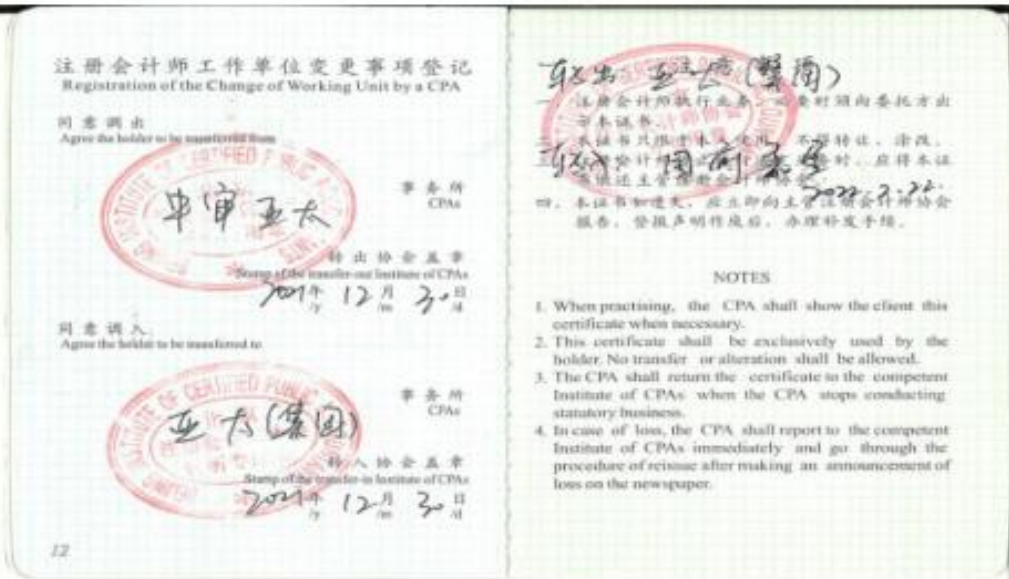 注册会计师工作单位变更事项登记
Registration of the Change of Working Unit by a CPA
同意调出
Agree the holder to be transferred from
中审亚太
事务所
CPAs
转出协会盖章
Stamp of the transfer-out Institute of CPAs
2021年 12月 30日
/y /m /d
同意调入
Agree the holder to be transferred to
事务所
CPAs
亚太(集团)
转入协会盖章
Stamp of the transfer-in Institute of CPAs
2021年 12月 30日
/y /m /d
12
转出 亚太(集团)
一、注册会计师执行业务,必要时须向委托方出
示本证书。
二、本证书只限于本人使用,不得转让、涂改。
转入
时,应将本证
2022.2.22.
四、本证书如遗失,应立即向主管注册会计师协会
报告,登报声明作废后,办理补发手续。
NOTES
1. When practising, the CPA shall show the client this
certificate when necessary.
2. This certificate shall be exclusively used by the
holder. No transfer or alteration shall be allowed.
3. The CPA shall return the certificate to the competent
Institute of CPAs when the CPA stops conducting
statutory business.
4. In case of loss, the CPA shall report to the competent
Institute of CPAs immediately and go through the
procedure of reissue after making an announcement of
loss on the newspaper.